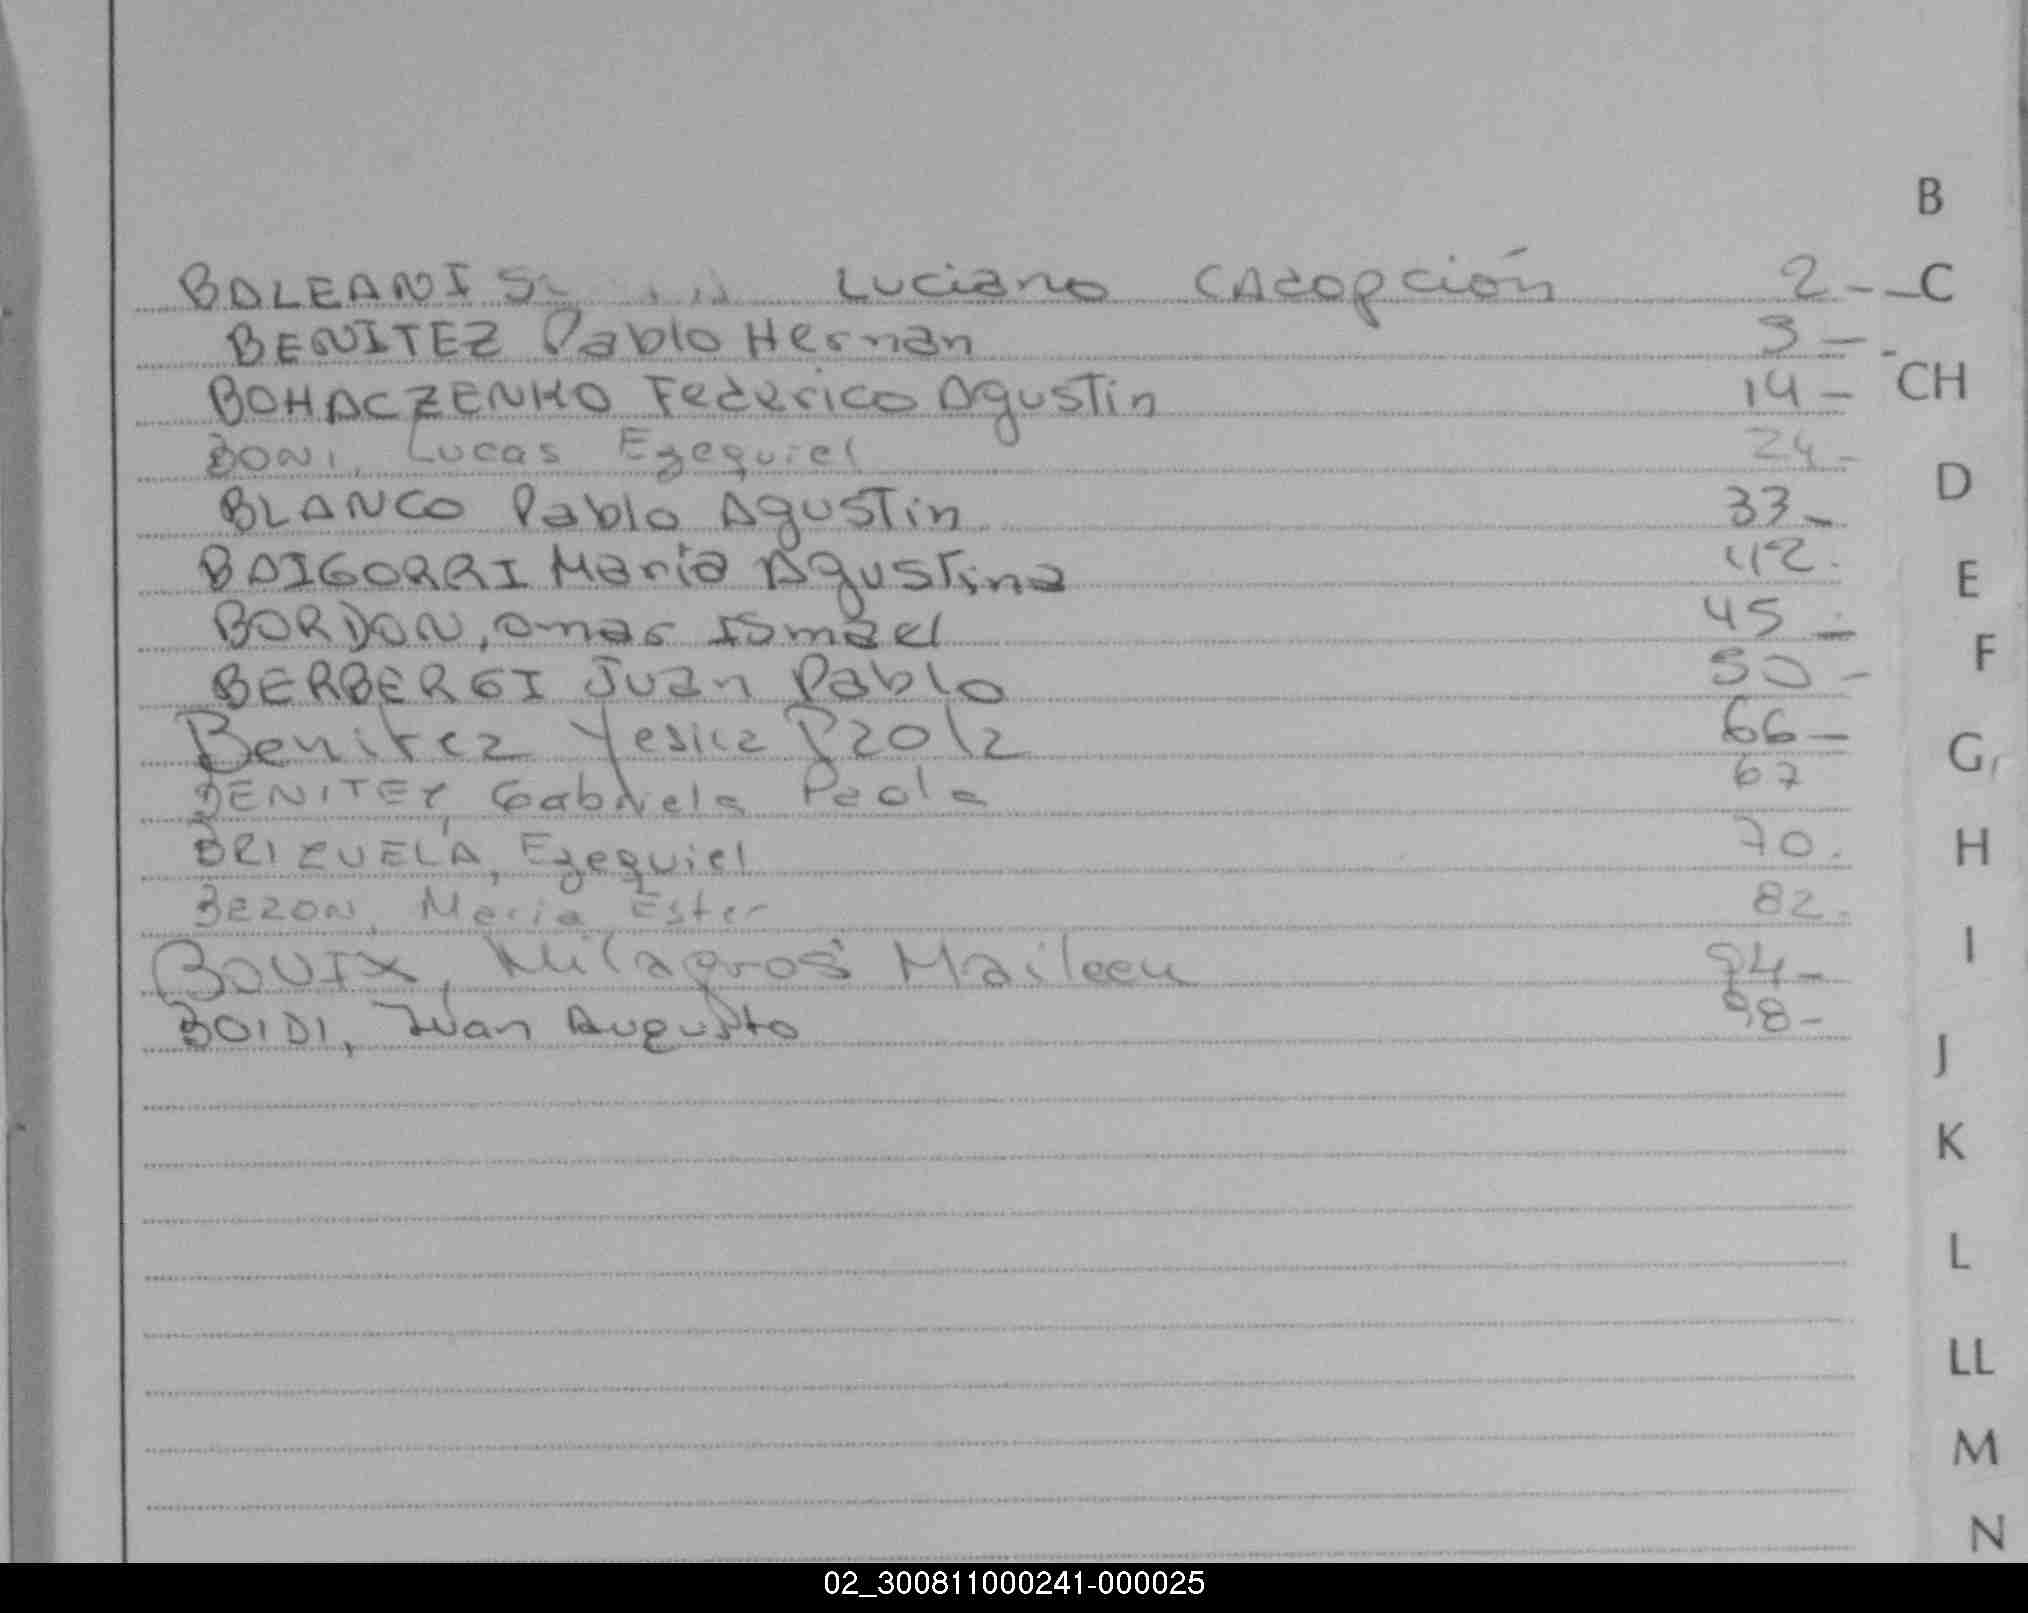 BALEANI Luciano (Adopción 2 -
BENITEZ Pablo Hernan 3 -
BOHACZENKO Federico Agustin 14 -
BONI, Lucas Ezequiel 24 -
BLANCO Pablo Agustin 33 -
BAIGORRI Maria Agustina 42.
BORDON, Omar Ismael 45 -
BERBERGI Juan Pablo 50 -
Benitez Yesica Paola 66 -
BENITEZ, Gabriela Paola 67
BRIZUELA, Ezequiel 70.
BEZON, Maria Ester 82.
BOUIX, Milagros Maileen 94 -
BOIDI, Juan Augusto 98 -
B
C
CH
D
E
F
G
H
I
J
K
L
LL
M
N
02_300811000241-000025